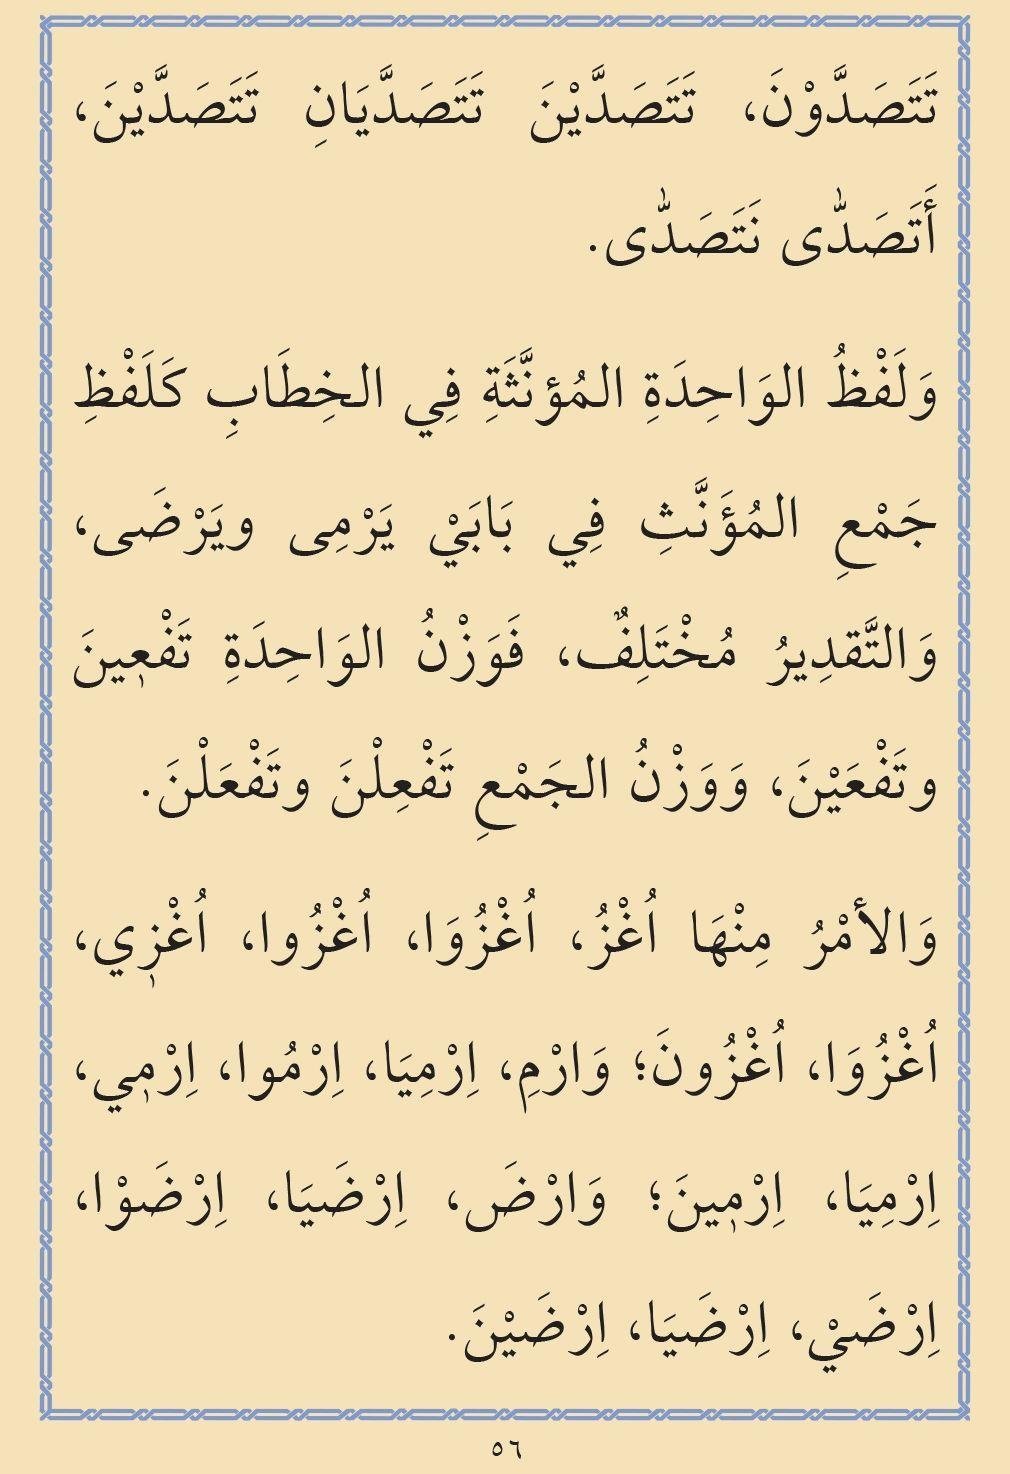 تَتَصَدَّوْنَ، تَتَصَدَّيْنَ تَتَصَدَّيَانِ تَتَصَدَّيْنَ،
أَتَصَدّٰى نَتَصَدّٰى.
وَلَفْظُ الوَاحِدَةِ المُؤنَّثَةِ فِي الخِطَابِ كَلَفْظِ
جَمْعِ المُؤَنَّثِ فِي بَابَيْ يَرْمِى ويَرْضَى،
وَالتَّقدِيرُ مُخْتَلِفٌ، فَوَزْنُ الوَاحِدَةِ تَفْعٖينَ
وتَفْعَيْنَ، وَوَزْنُ الجَمْعِ تَفْعِلْنَ وتَفْعَلْنَ.
وَالأمْرُ مِنْهَا اُغْزُ، اُغْزُوَا، اُغْزُوا، اُغْزٖي،
اُغْزُوَا، اُغْزُونَ؛ وَارْمِ، اِرْمِيَا، اِرْمُوا، اِرْمٖي،
اِرْمِيَا، اِرْمٖينَ؛ وَارْضَ، اِرْضَيَا، اِرْضَوْا،
اِرْضَيْ، اِرْضَيَا، اِرْضَيْنَ.
٥٦